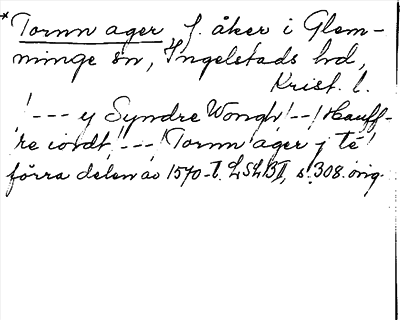 * Tornn ager f. åker i Glem-
minge sn, Ingelstads hd,
Krist. l.
! --- y Syndre Wongh! --! Hauff-
re iordt! ---! Tornn ager j té!
förra delen av 1570-t. LSLB II, s. 308. orig.